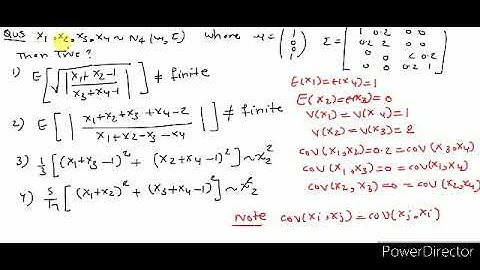 Qus X1, X2, X3, X4 ~ N4 (μ, Σ) where μ = (1 0 0 1) Σ = (1 0.2 0 0 / 0.2 2 0 0 / 0 0 2 0.2 / 0 0 0.2 1)
Then True?
1) E[√|X1+X2-1 / X3+X4-1|] ≠ finite
2) E[|X1+X2+X3+X4-2 / X1+X2-X3-X4|] ≠ finite
3) 1/3 [(X1+X3-1)² + (X2+X4-1)²] ~ χ²2
4) [(X1+X2)² + (X3+X4-1)²] ~ χ²2
E(X1) = E(X4) = 1
E(X2) = E(X3) = 0
V(X1) = V(X4) = 1
V(X2) = V(X3) = 2
COV(X1,X2) = 0.2 = COV(X3,X4)
COV(X1,X3) = 0 = COV(X1,X4)
COV(X2,X3) = 0 = COV(X2,X4)
Note COV(Xi,Xj) = COV(Xj,Xi)
PowerDirector